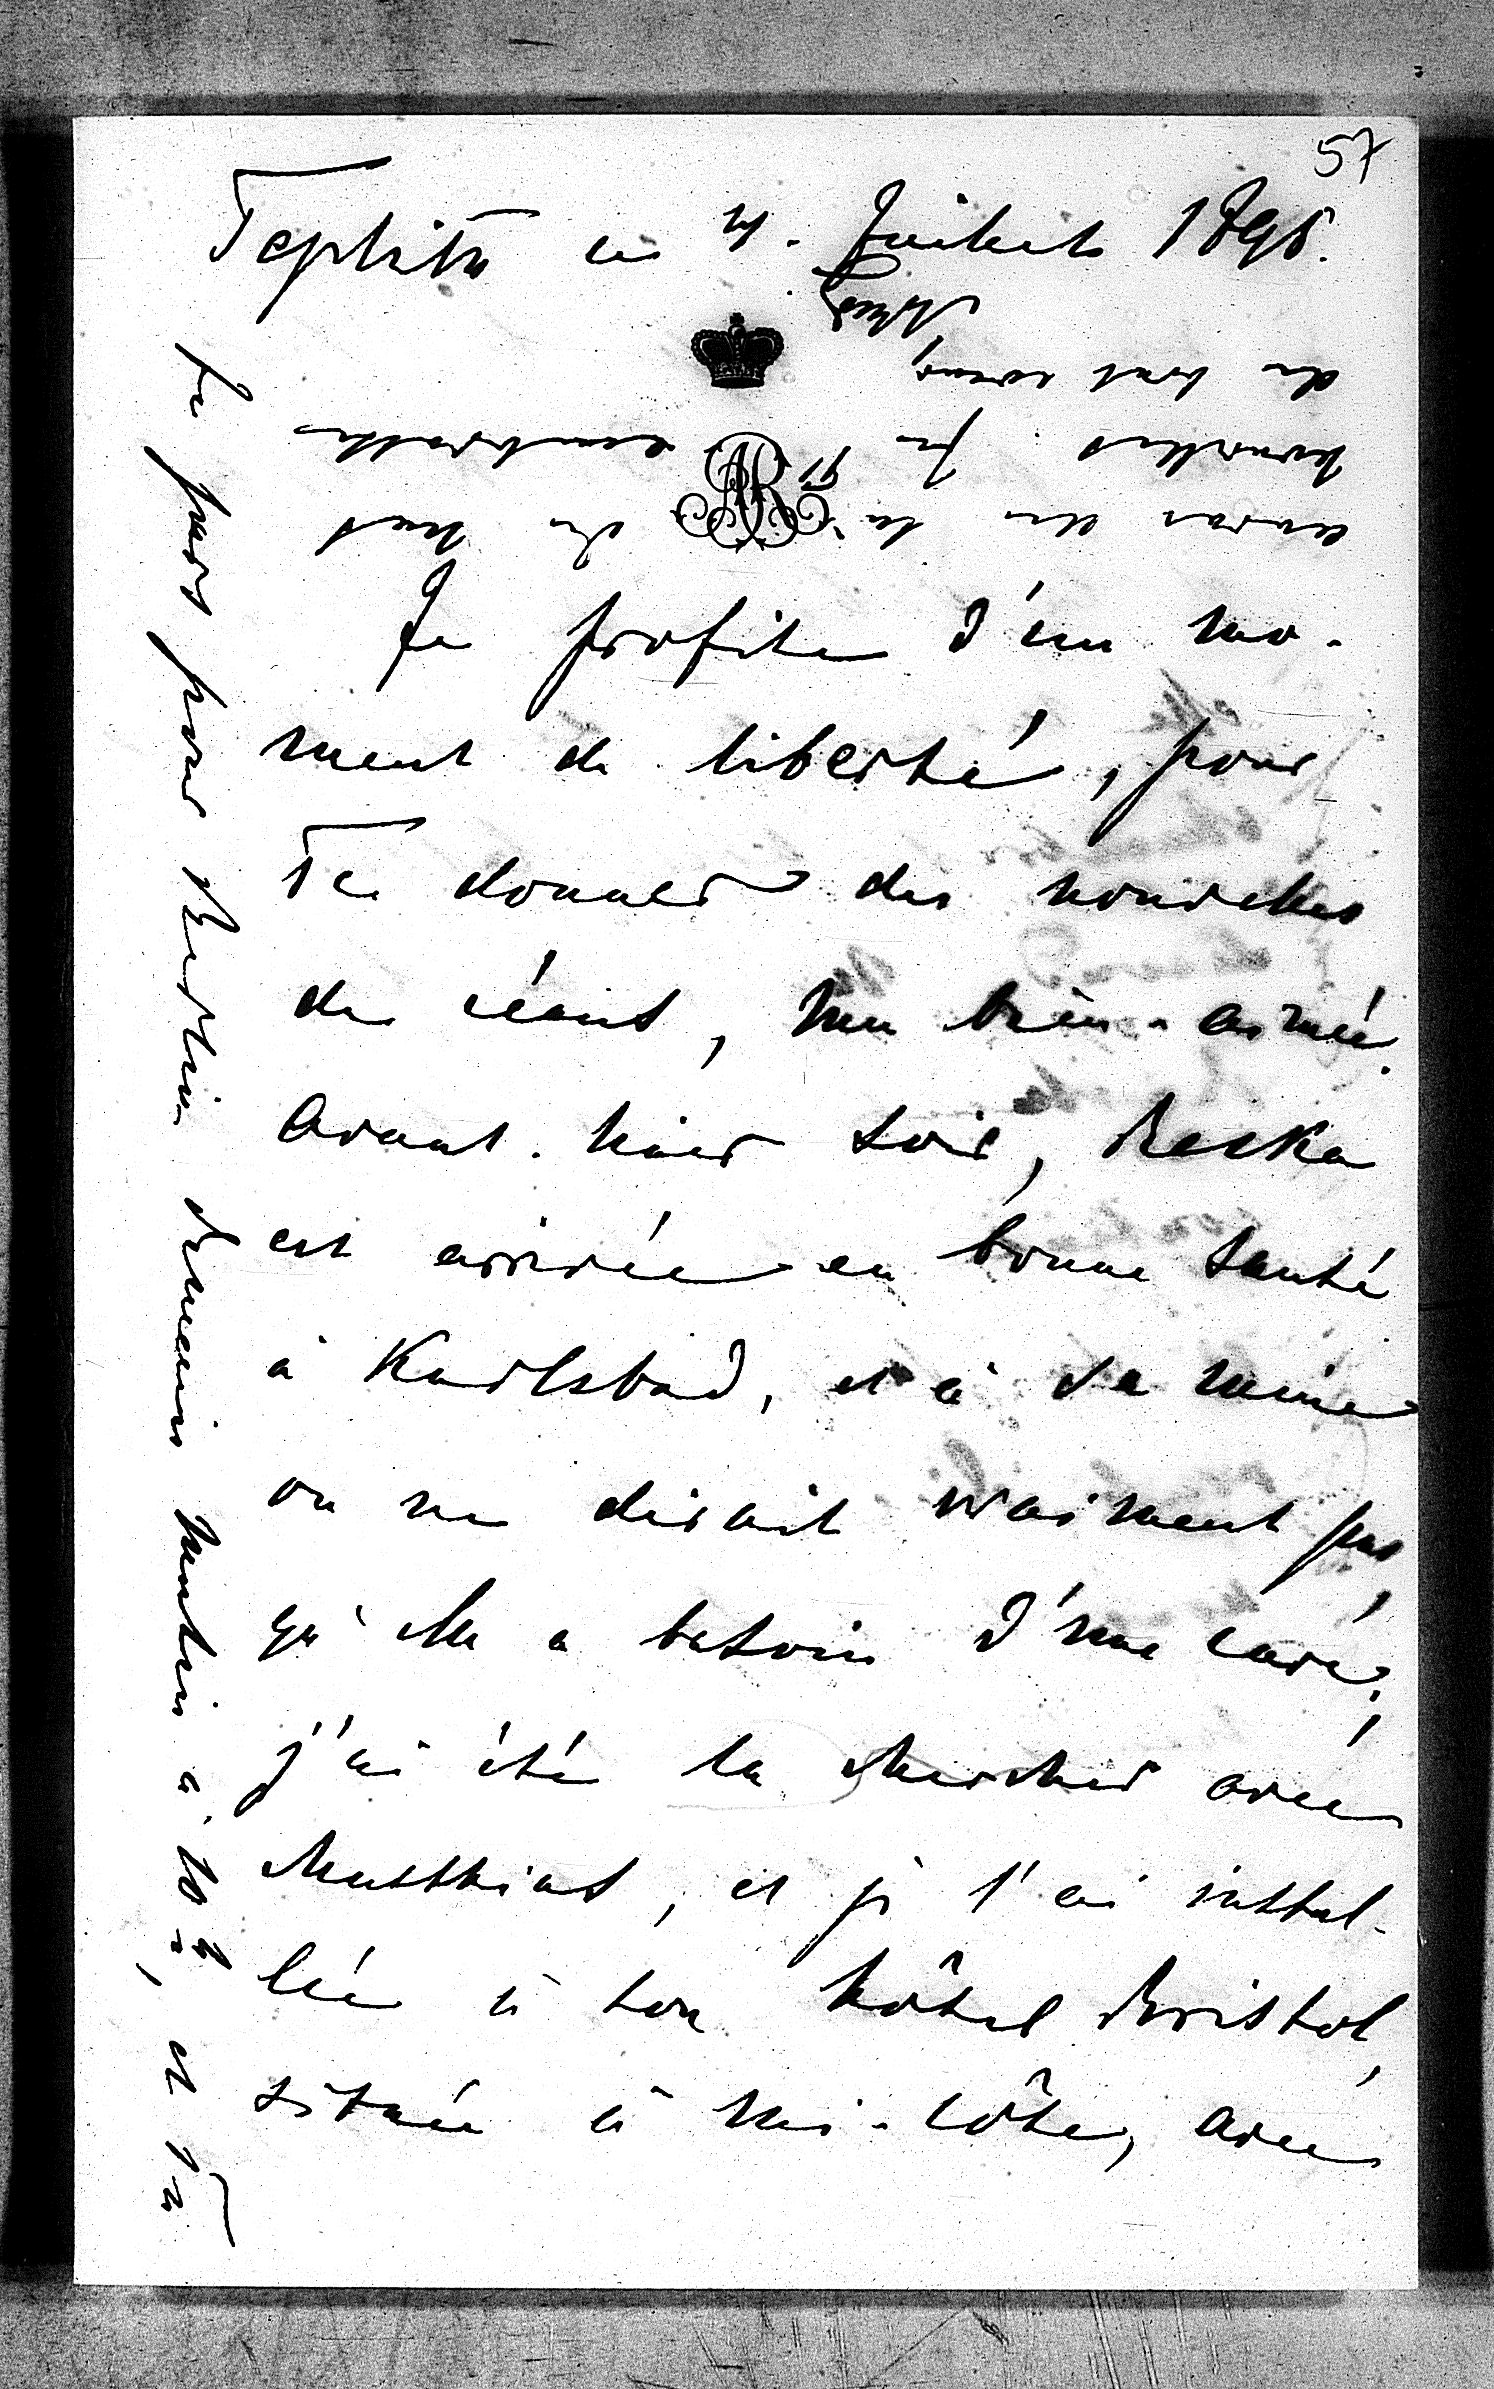 57
Teplitz ce 4. Juillet 1895.
Je profite d'un mo-
ment de liberté, pour
Te donner des nouvelles
de céans, mon bien-aimé.
Avant-hier soir, Becka
est arrivée en bonne santé
à Karlsbad, et à sa mine
on ne dirait vraiment pas,
qu'elle a besoin d'une cure;
j'ai été la chercher avec
Matthias, et je l'ai instal-
lée à son hôtel Bristol,
située à mi-côte, avec
Je pars pour Berlin demain matin à 10 h, et Tu
auras de là de mes
nouvelles. Je T'embrasse
de tout cœur,